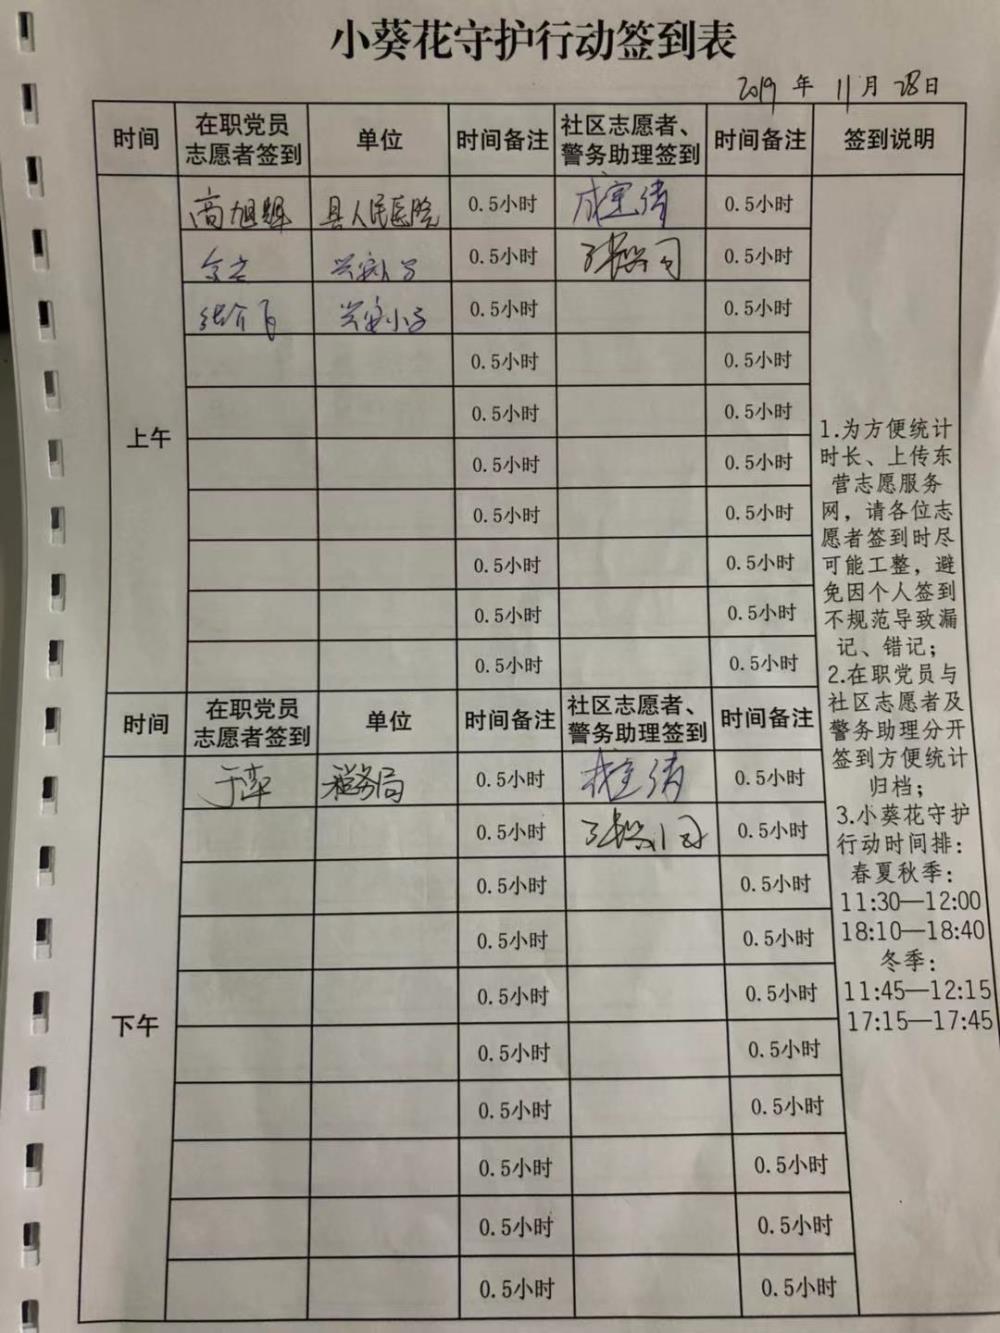 小葵花守护行动签到表
2019 年 11月 28日
时间 在职党员志愿者签到 单位 时间备注 社区志愿者、警务助理签到 时间备注 签到说明
上午
高旭辉 县人民医院 0.5小时 0.5小时
0.5小时 0.5小时
0.5小时 0.5小时
0.5小时 0.5小时
0.5小时 0.5小时
0.5小时 0.5小时
0.5小时 0.5小时
0.5小时 0.5小时
0.5小时 0.5小时
0.5小时 0.5小时
时间 在职党员志愿者签到 单位 时间备注 社区志愿者、警务助理签到 时间备注
下午
税务局 0.5小时 0.5小时
0.5小时 0.5小时
0.5小时 0.5小时
0.5小时 0.5小时
0.5小时 0.5小时
0.5小时 0.5小时
0.5小时 0.5小时
0.5小时 0.5小时
0.5小时 0.5小时
0.5小时 0.5小时
1.为方便统计
时长、上传东
营志愿服务
网，请各位志
愿者签到时尽
可能工整，避
免因个人签到
不规范导致漏
记、错记；
2.在职党员与
社区志愿者及
警务助理分开
签到方便统计
归档；
3.小葵花守护
行动时间排：
春夏秋季：
11:30—12:00
18:10—18:40
冬季：
11:45—12:15
17:15—17:45